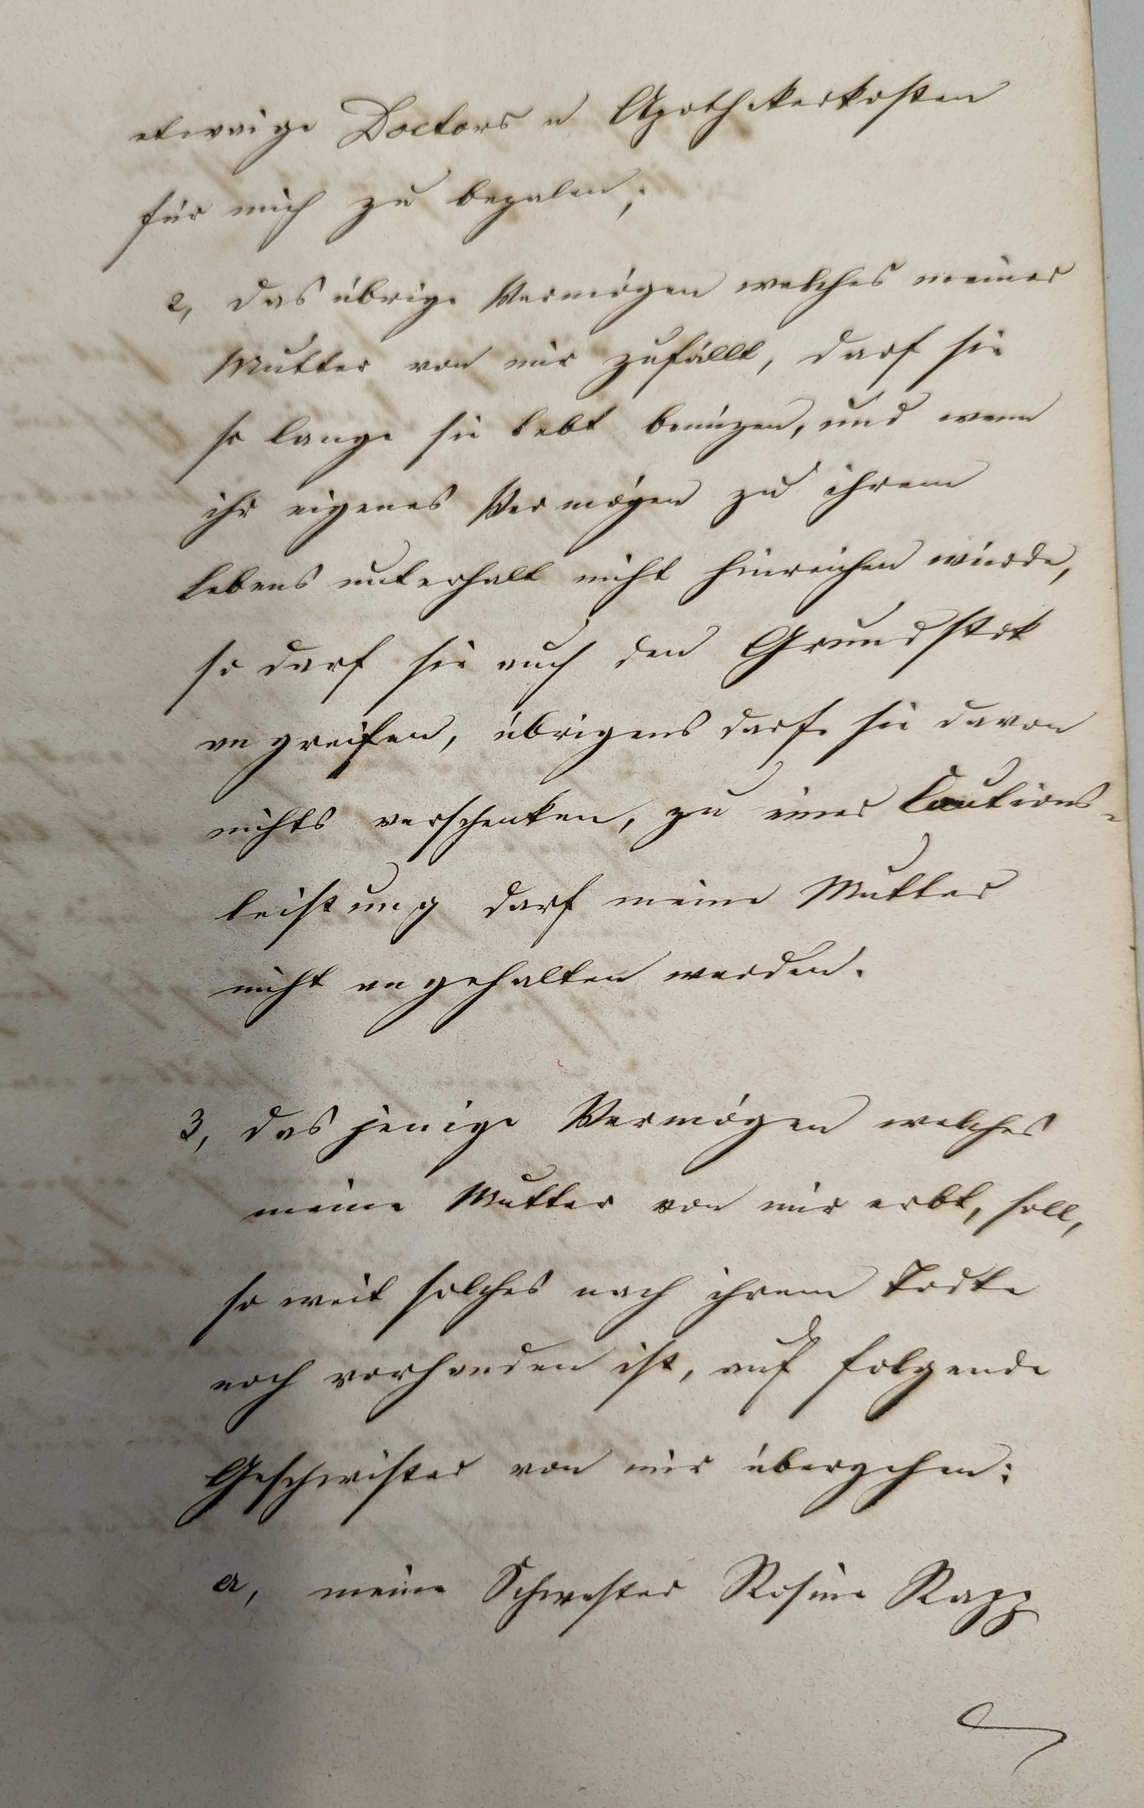 etwaige Doctors u Apothekerkosten
für mich zu bezalen;
2, das übrige Vermögen welches meiner
Mutter von mir zufällt, darf sie
so lange sie lebt benüzen, und wenn
ihr eigenes Vermögen zu ihrem
Lebens unterhalt nicht hinreichen würde,
so darf sie auch den Grundstok
angreifen, übrigens darf sie davon
nichts verschenken, zu einer Cautions-
leistung darf meine Mutter
nicht angehalten werden.
3, das jenige Vermögen welches
meine Mutter von mir erbt, soll,
so weit solches nach ihrem Todte
noch vorhanden ist, auf folgende
Geschwister von mir übergehen:
a, meine Schwester Rosine Rapp